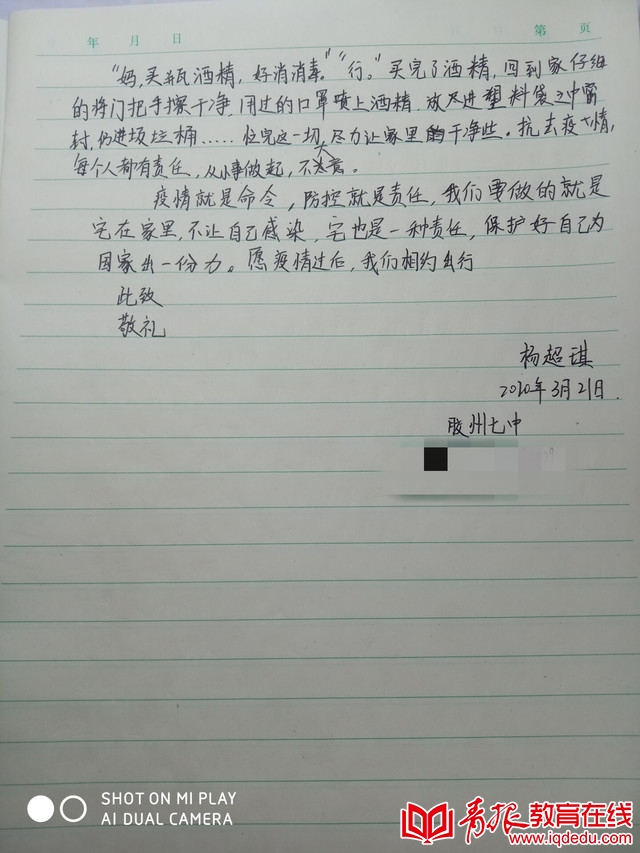 年 月 日
第 页
“妈,买瓶酒精,好消消毒。”“行。”买完了酒精,回到家仔细
的将门把手擦干净,用过的口罩喷上酒精,放进塑料袋之中密
封,仍进垃圾桶......忙完这一切,尽力让家里的干净些。抗击疫情,
每个人都有责任,从事做起,不大意。
疫情就是命令,防控就是责任,我们要做的就是
宅在家里,不让自己感染,宅也是一种责任,保护好自己为
国家出一份力。愿疫情过后,我们相约出行
此致
敬礼
杨超琪
2020年3月21日.
胶州七中
SHOT ON MI PLAY
AI DUAL CAMERA
青报教育在线
www.iqdedu.com